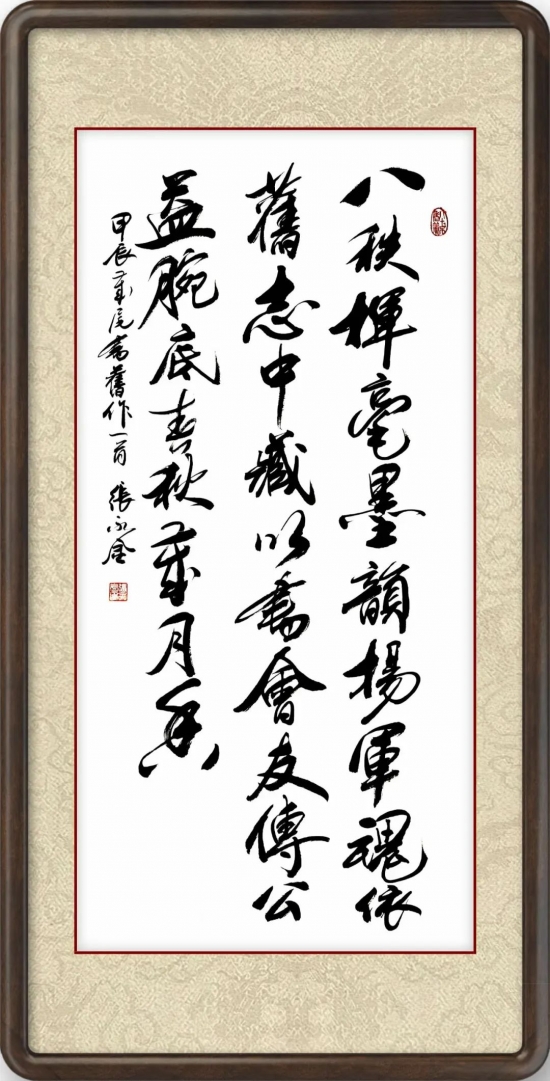 八秩揮毫墨韻揚軍魂依
舊志中藏以書會友傳公
益腕底春秋歲月香
甲辰歲尾書舊作一首 張永